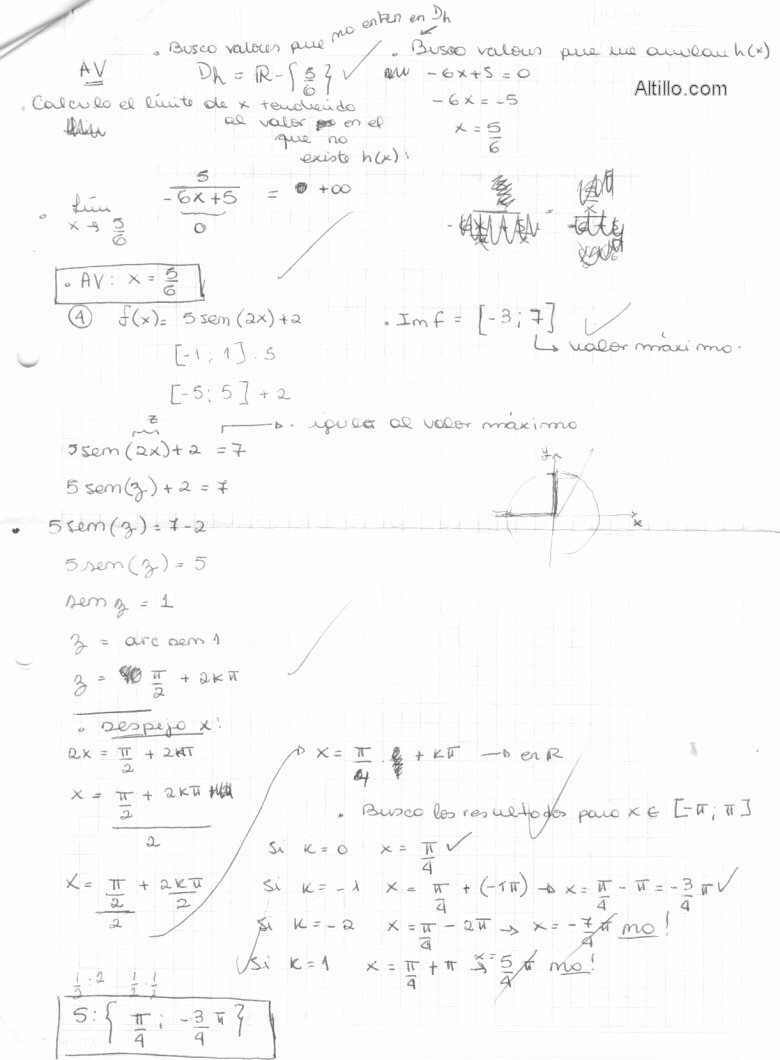 . Busco valores que no estén en Dh
. Busco valores que me anulan h(x)
AV
Dh = ℝ - {5/6} ✓
-6x+5 = 0
Altillo.com
. Calculo el límite de x tendiendo
-6x = -5
al valor en el
x = 5/6
que no
existe h(x):
. lím x→5/6 5/(-6x+5) = +∞
0
. AV: x = 5/6
④ f(x) = 5 sen(2x)+2
. Imf = [-3; 7] ✓
↳ valor máximo.
[-1; 1] . 5
[-5; 5] + 2
z
→ . igualo al valor máximo
5 sen(2x)+2 = 7
y
x
5 sen(z)+2 = 7
5 sen(z) = 7-2
5 sen(z) = 5
sen z = 1
z = arc sen 1
z = π/2 + 2kπ
. Despejo x:
2x = π/2 + 2kπ
→ x = π/4 + kπ → en ℝ
x = (π/2 + 2kπ)/2
. Busco los resultados para x ∈ [-π; π]
Si k=0 x = π/4 ✓
x = (π/2)/2 + 2kπ/2
Si k=-1 x = π/4 + (-1π) → x = π/4 - π = -3/4 π ✓
Si k=-2 x = π/4 - 2π → x = -7/4 π no!
Si k=1 x = π/4 + π → x = 5/4 π no!
1/2 . 2 1/2 . 1/2
S: {π/4 ; -3/4 π}